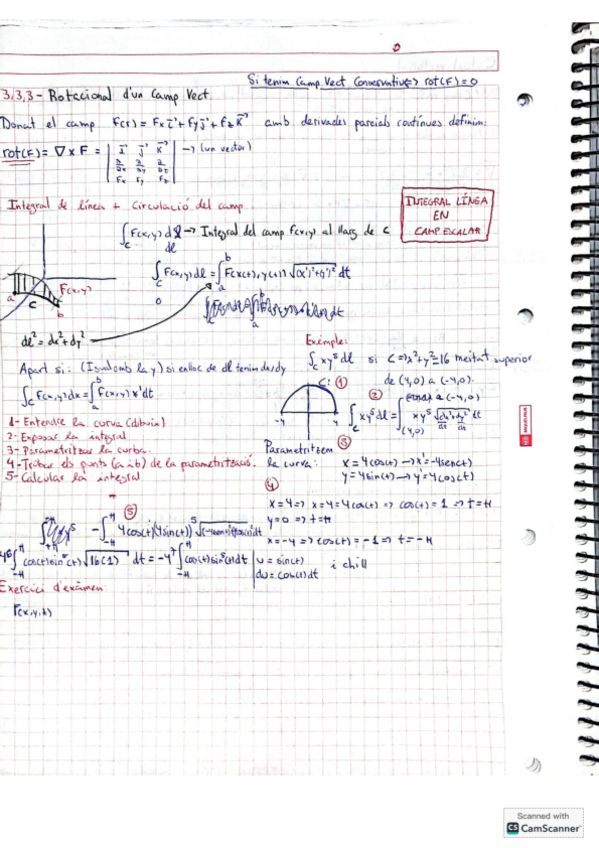 Si tenim Camp Vect Conservatiu => rot(F) = 0
3.3.3 - Rotacional d'un Camp Vect
Donat el camp F(r) = Fx i + Fy j + Fz K amb derivades parcials contínues definim:
rot(F) = ∇ x F = | i j K | -> (un vector)
∂/∂x ∂/∂y ∂/∂z
Fx Fy Fz
Integral de línea + Circulació del camp
INTEGRAL LÍNEA
EN
CAMP ESCALAR
∫c F(x,y) dl -> Integral del camp F(x,y) al llarg de C
dl
∫c F(x,y) dl = ∫a^b F(x(t), y(t)) √(x')²+(y')² dt
F(x,y)
a c b
dl² = dx² + dy²
Apart si: (Igual amb la y) si enlloc de dl tenim dx/dy
∫c F(x,y) dx = ∫a^b F(x,y) x' dt
1 - Entendre la curva (dibuix)
2 - Exposar la integral
3 - Parametritzar la curba.
4 - Trobar els punts (a i b) de la parametrització.
5 - Calcular la integral
Exemple:
∫c xy⁵ dl si C => x²+y²=16 meitat superior
de (4,0) a (-4,0).
C: ①
-4 4
② ∫c xy⁵ dl = ∫(4,0) xy⁵ √dx²/dt+dy²/dt dt
Parametritzem ③
la curva: x = 4cos(t) -> x' = -4sen(t)
y = 4sin(t) -> y' = 4cos(t)
④
x = 4 => x = 4 = 4cos(t) => cos(t) = 1 => t = π
y = 0 => t = π
x = -4 => cos(t) = -1 => t = -π
⑤
cos(t) sin⁵(t) √16(1) dt = -4⁷ ∫-π^π cos(t) sin⁵(t) dt | u = sin(t)
du = cos(t) dt
i chill
Exercici d'exàmen
F(x,y,z)
Scanned with
CS CamScanner